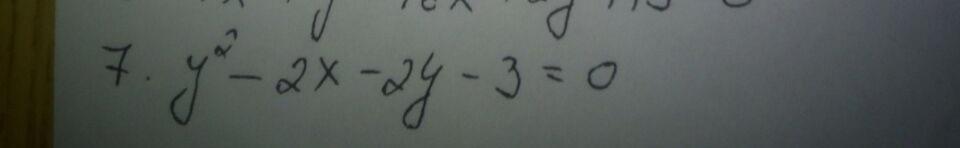 7. y² - 2x - 2y - 3 = 0